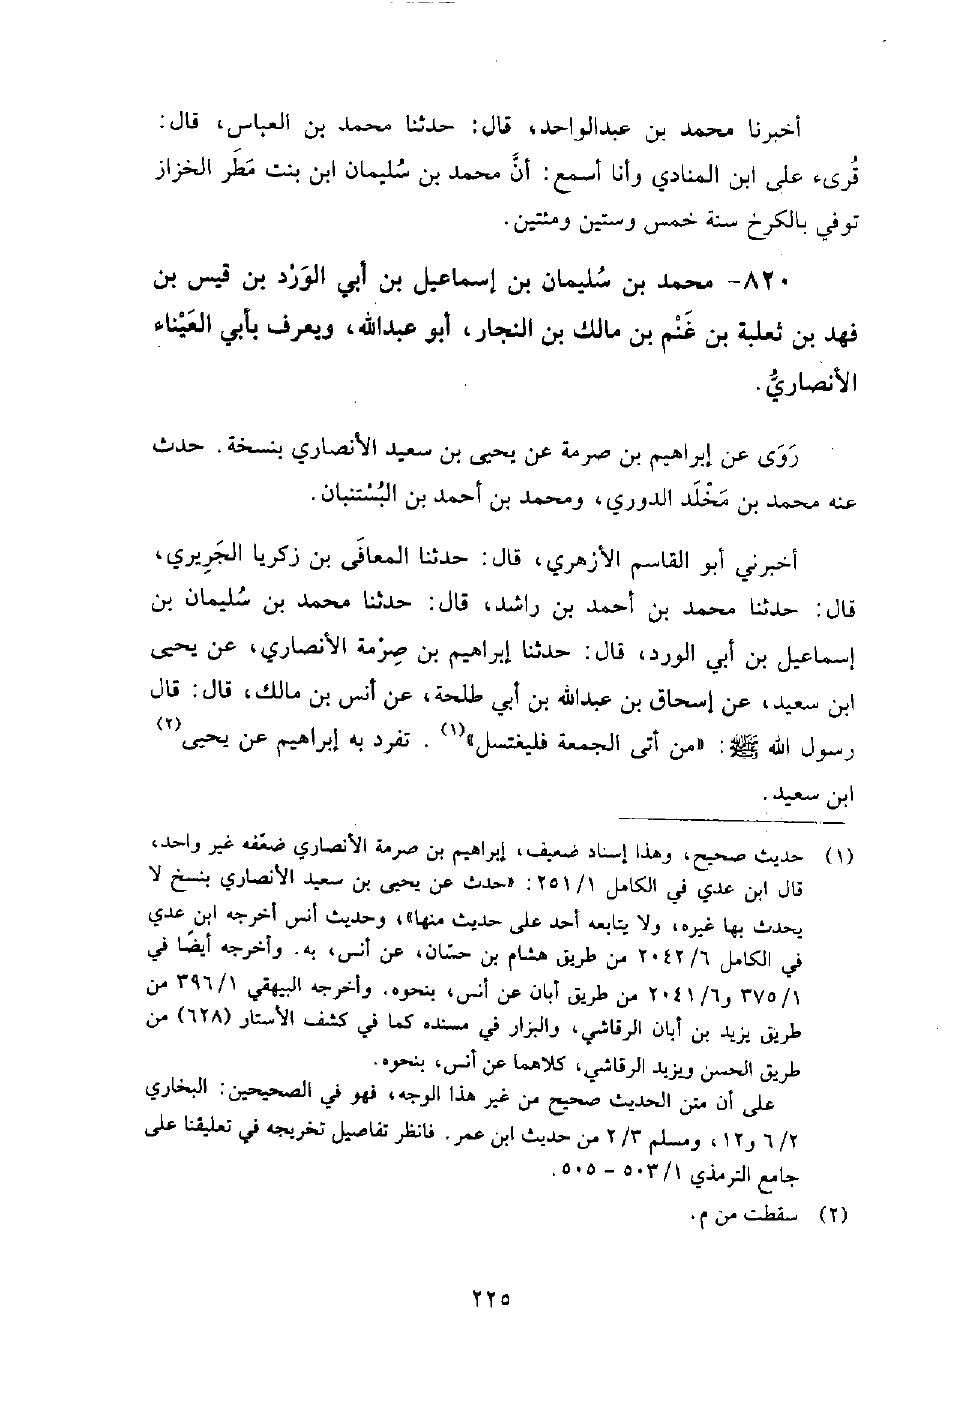 أخبرنا محمد بن عبدالواحد، قال: حدثنا محمد بن العباس، قال:
قُرىء على ابن المنادي وأنا أسمع: أنَّ محمد بن سُليمان ابن بنت مَطَر الخزاز
توفي بالكرخ سنة خمس وستين ومئتين.
٨٢٠- محمد بن سُليمان بن إسماعيل بن أبي الوَرْد بن قيس بن
فهد بن ثعلبة بن غَنْم بن مالك بن النجار، أبو عبدالله، ويعرف بأبي العَيْناء
الأنصاريُّ.
رَوَى عن إبراهيم بن صرمة عن يحيى بن سعيد الأنصاري بنسخة. حدث
عنه محمد بن مَخْلَد الدوري، ومحمد بن أحمد بن البُسْتنبان.
أخبرني أبو القاسم الأزهري، قال: حدثنا المعافَى بن زكريا الجَرِيري،
قال: حدثنا محمد بن أحمد بن راشد، قال: حدثنا محمد بن سُليمان بن
إسماعيل بن أبي الورد، قال: حدثنا إبراهيم بن صِرْمة الأنصاري، عن يحيى
ابن سعيد، عن إسحاق بن عبدالله بن أبي طلحة، عن أنس بن مالك، قال: قال
رسول الله ﷺ: «من أتى الجمعة فليغتسل»(١). تفرد به إبراهيم عن يحيى(٢)
ابن سعيد.
(١) حديث صحيح، وهذا إسناد ضعيف، إبراهيم بن صرمة الأنصاري ضعّفه غير واحد،
قال ابن عدي في الكامل ١/ ٢٥١: «حدث عن يحيى بن سعيد الأنصاري بنسخ لا
يحدث بها غيره، ولا يتابعه أحد على حديث منها»، وحديث أنس أخرجه ابن عدي
في الكامل ٦/ ٢٠٤٢ من طريق هشام بن حسّان، عن أنس، به. وأخرجه أيضًا في
١/ ٣٧٥ و٦/ ٢٠٤١ من طريق أبان عن أنس، بنحوه. وأخرجه البيهقي ١/ ٣٩٦ من
طريق يزيد بن أبان الرقاشي، والبزار في مسنده كما في كشف الأستار (٦٢٨) من
طريق الحسن ويزيد الرقاشي، كلاهما عن أنس، بنحوه.
على أن متن الحديث صحيح من غير هذا الوجه، فهو في الصحيحين: البخاري
٢/ ٦ و١٢، ومسلم ٣/ ٢ من حديث ابن عمر. فانظر تفاصيل تخريجه في تعليقنا على
جامع الترمذي ١/ ٥٠٣ - ٥٠٥.
(٢) سقطت من م.
٢٢٥